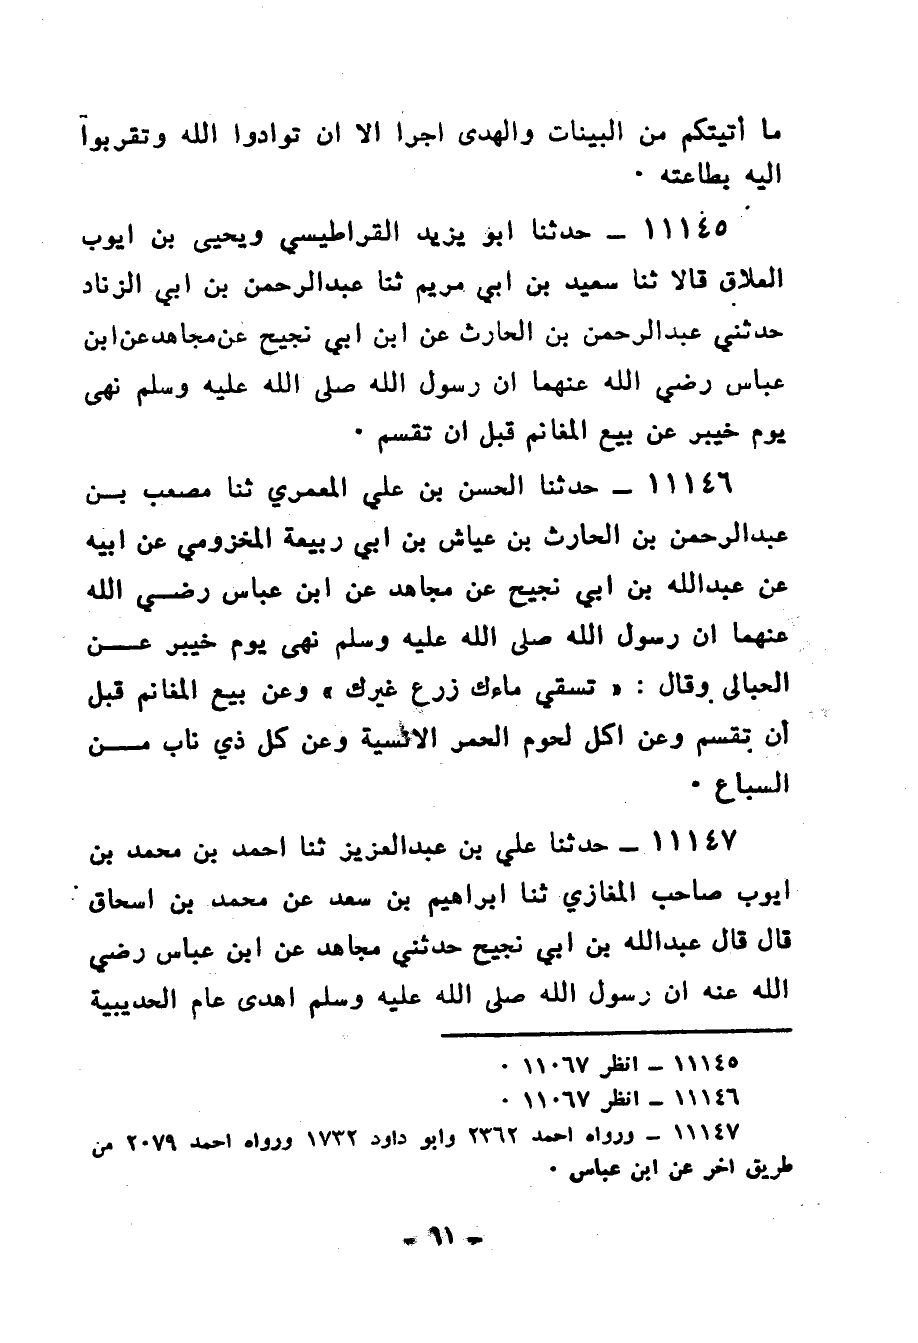 ما أتيتكم من البينات والهدى اجرا الا ان توادوا الله وتقربوا
اليه بطاعته ٠
١١١٤٥ ــ حدثنا ابو يزيد القراطيسي ويحيى بن ايوب
العلاق قالا ثنا سعيد بن ابي مريم ثنا عبدالرحمن بن ابي الزناد
حدثني عبدالرحمن بن الحارث عن ابن ابي نجيح عن مجاهد عن ابن
عباس رضي الله عنهما ان رسول الله صلى الله عليه وسلم نهى
يوم خيبر عن بيع المغانم قبل ان تقسم ٠
١١١٤٦ ــ حدثنا الحسن بن علي المعمري ثنا مصعب بــن
عبدالرحمن بن الحارث بن عياش بن ابي ربيعة المخزومي عن ابيه
عن عبدالله بن ابي نجيح عن مجاهد عن ابن عباس رضــي الله
عنهما ان رسول الله صلى الله عليه وسلم نهى يوم خيبر عــــن
الحبالى وقال : « تسقي ماءك زرع غيرك » وعن بيع المغانم قبل
أن تقسم وعن اكل لحوم الحمر الانسية وعن كل ذي ناب مــــن
السباع ٠
١١١٤٧ ــ حدثنا علي بن عبدالعزيز ثنا احمد بن محمد بن
ايوب صاحب المغازي ثنا ابراهيم بن سعد عن محمد بن اسحاق
قال قال عبدالله بن ابي نجيح حدثني مجاهد عن ابن عباس رضي
الله عنه ان رسول الله صلى الله عليه وسلم اهدى عام الحديبية
١١١٤٥ ــ انظر ١١٠٦٧ ٠
١١١٤٦ ــ انظر ١١٠٦٧ ٠
١١١٤٧ ــ ورواه احمد ٢٣٦٢ وابو داود ١٧٣٢ ورواه احمد ٢٠٧٩ من
طريق اخر عن ابن عباس ٠
- ٦١ -